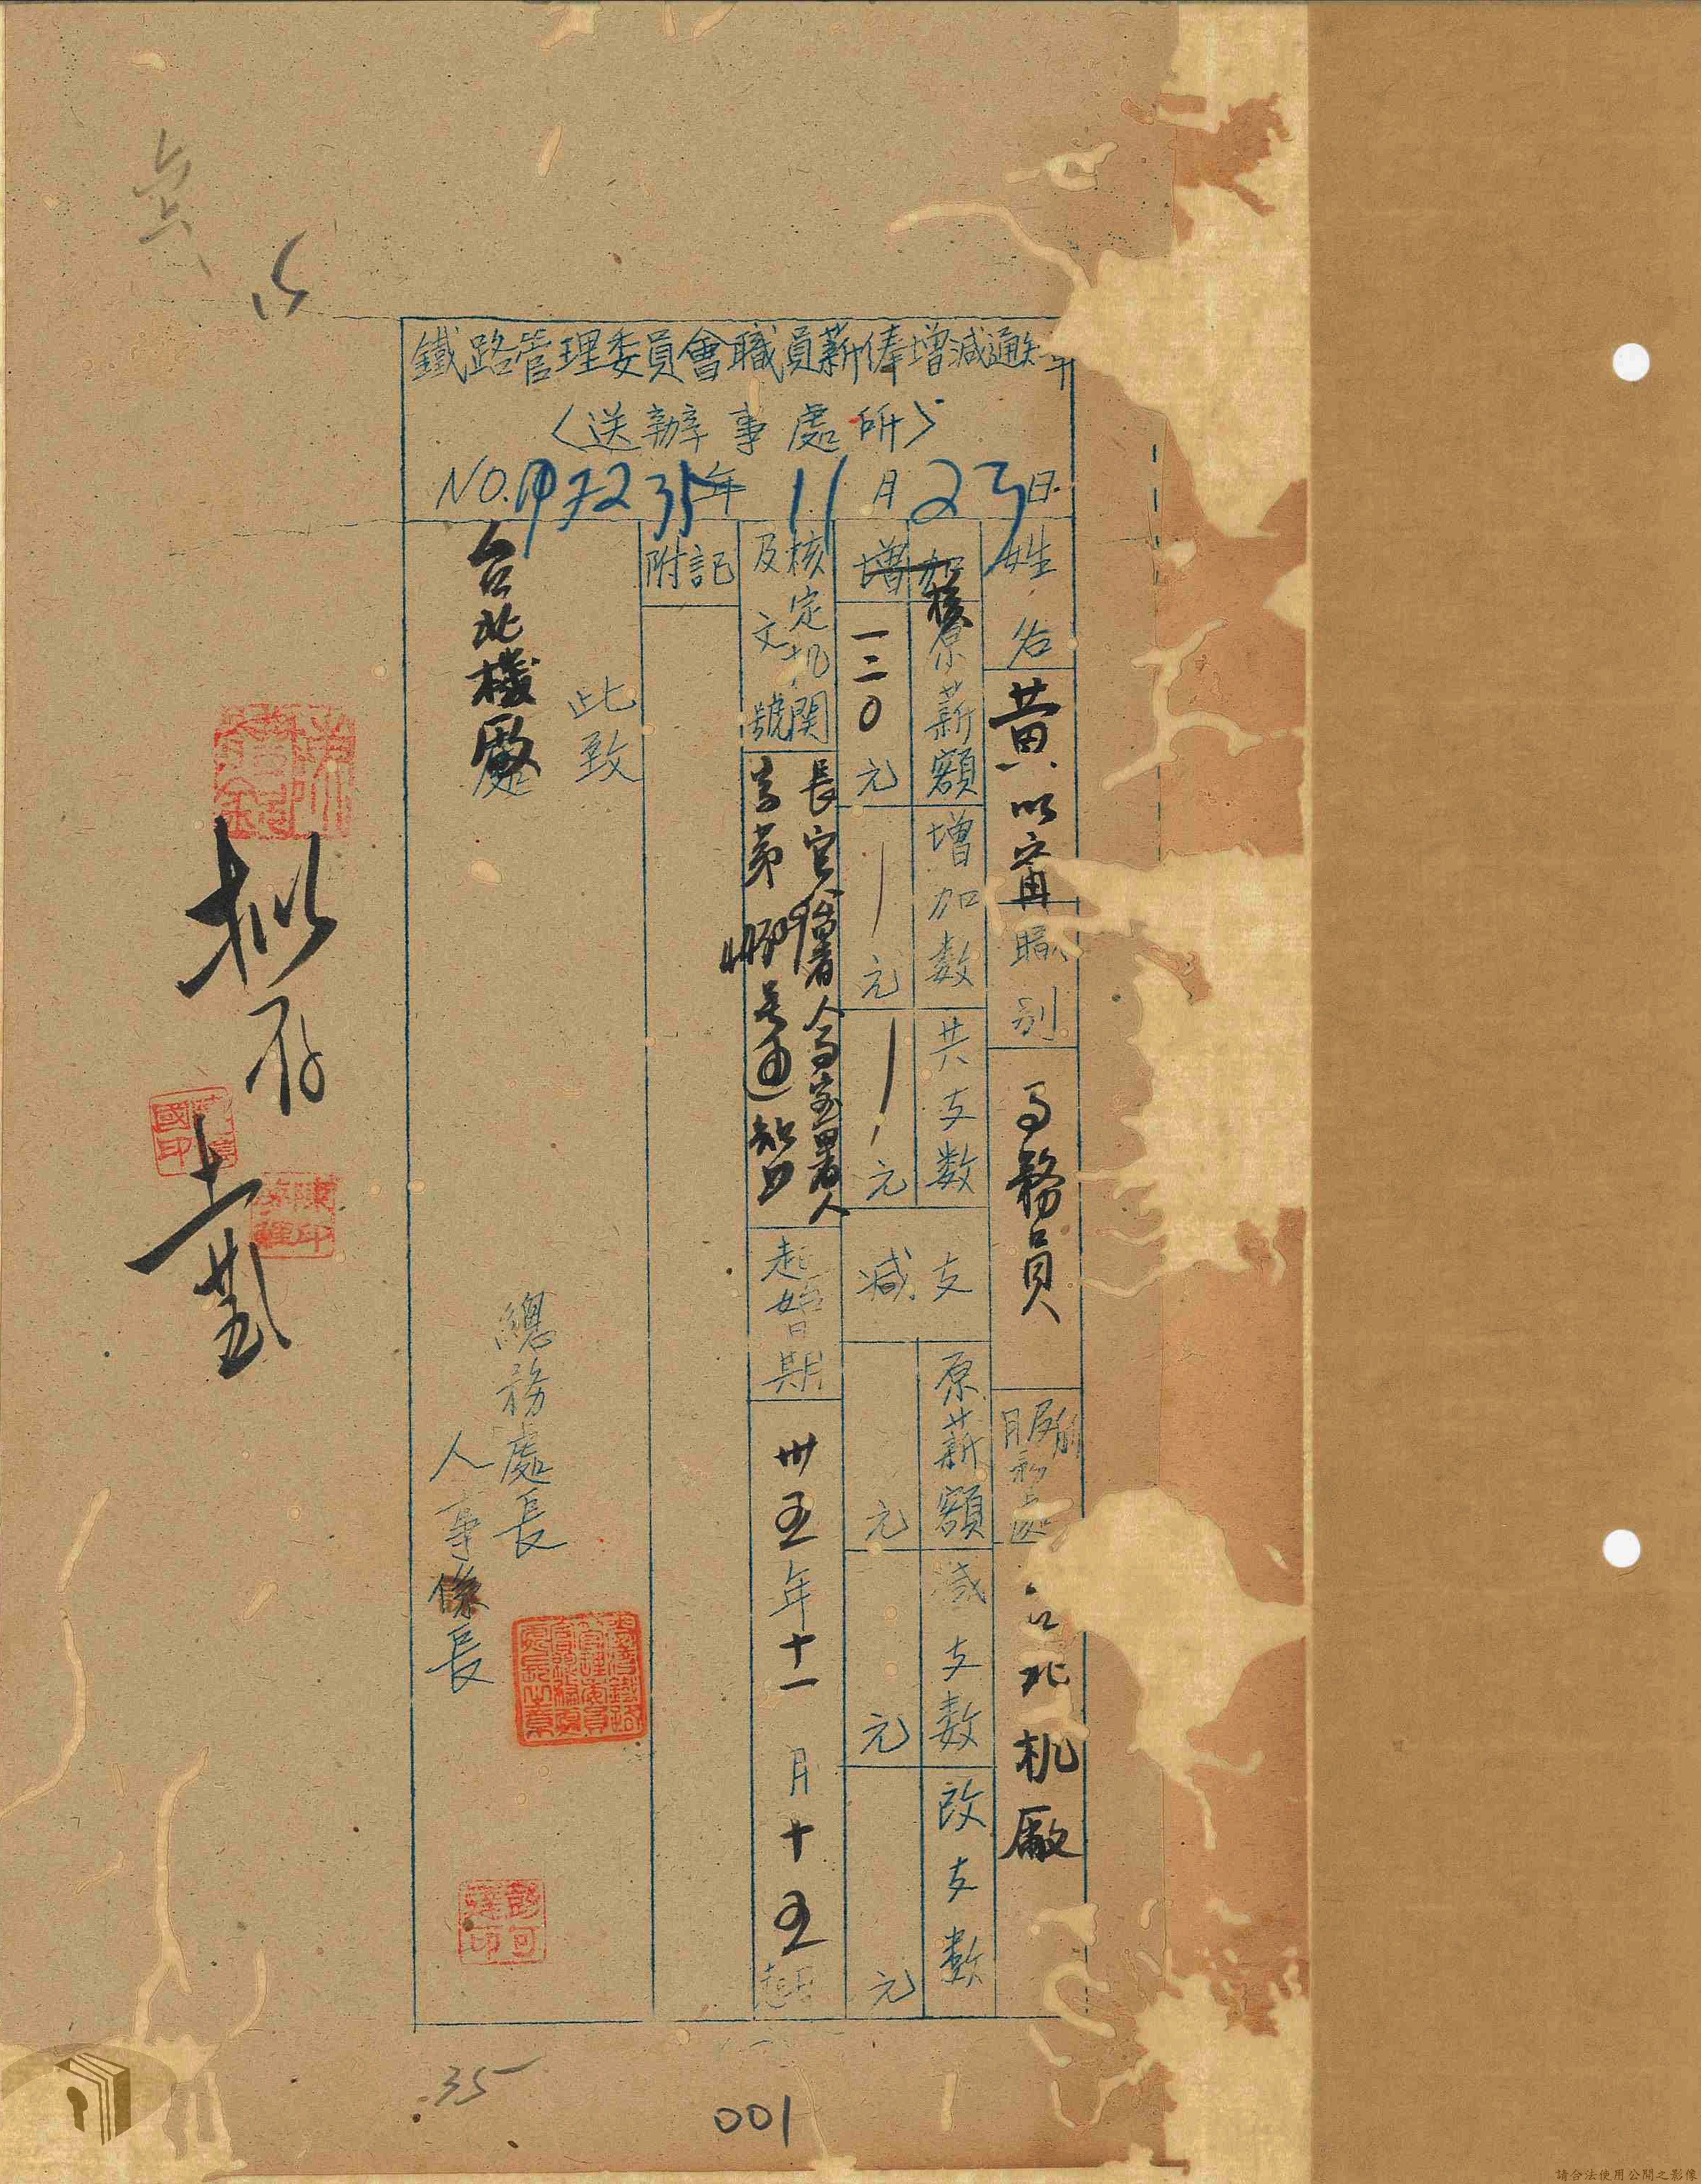 鐵路管理委員會職員薪俸增減通知
〈送辦事處所〉
NO. 35年 11月23日
姓名
黃以甯
職別
事務員
服務處
台北机廠
增加
核
原薪額
一二〇元
增加數
元
共支數
元
減支
原薪額
元
減支數
元
改支數
元
核定机関
及文號
長官公署人事室署人
字第 號通知
起始日期
卅五年十一月十五日起
附記
此致
台北機廠
總務處長
人事 長
擬存
十一 廿五
35
001
請合法使用公開之影像